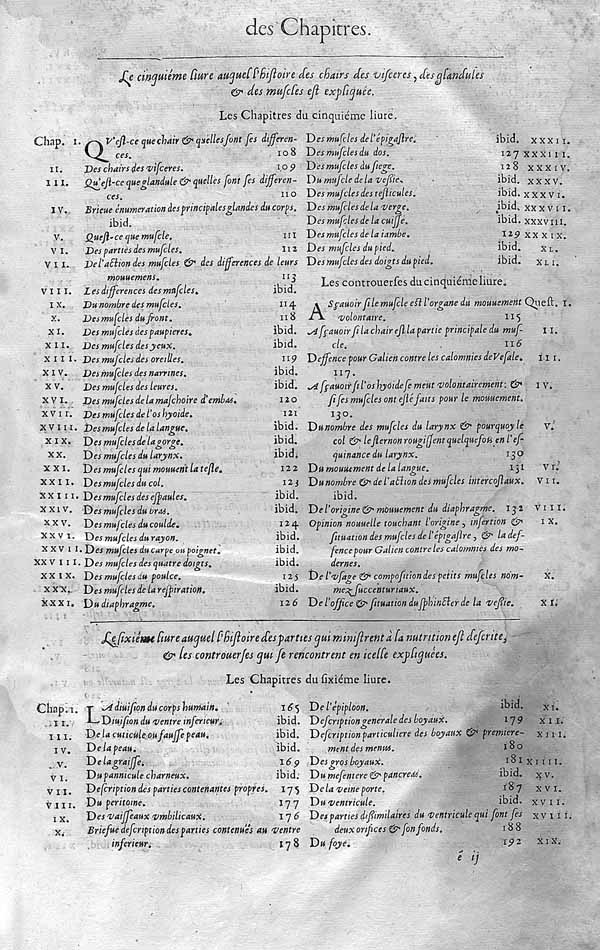 des Chapitres.
Le cinquiéme liure auquel l'histoire des chairs des visceres, des glandules
& des muscles est expliquée.
Les Chapitres du cinquiéme liure.
Chap. I. QV'est-ce que chair & quelles sont ses differen-
ces. 108
II. Des chairs des visceres. 109
III. Qu'est-ce que glandule & quelles sont ses differen-
ces. 110
IV. Brieue énumeration des principales glandes du corps.
ibid.
V. Quest-ce que muscle. 111
VI. Des parties des muscles. 112
VII. De l'action des muscles & des differences de leurs
mouuemens. 113
VIII. Les differences des muscles. ibid.
IX. Du nombre des muscles. 114
X. Des muscles du front. 118
XI. Des muscles des paupieres. ibid.
XII. Des muscles des yeux. ibid.
XIII. Des muscles des oreilles. 119
XIV. Des muscles des narrines. ibid.
XV. Des muscles des leures. ibid.
XVI. Des muscles de la maschoire d'embas. 120
XVII. Des muscles de l'os hyoide. 121
XVIII. Des muscles de la langue. ibid.
XIX. Des muscles de la gorge. ibid.
XX. Des muscles du larynx. ibid.
XXI. Des muscles qui mouuent la teste. 122
XXII. Des muscles du col. 123
XXIII. Des muscles des espaules. ibid.
XXIV. Des muscles du bras. ibid.
XXV. Des muscles du coulde. 124
XXVI. Des muscles du rayon. ibid.
XXVII. Des muscles du carpe ou poignet. ibid.
XXVIII. Des muscles des quatre doigts. ibid.
XXIX. Des muscles du poulce. 125
XXX. Des muscles de la respiration. ibid.
XXXI. Du diaphragme. 126
Des muscles de l'épigastre. ibid. XXXII.
Des muscles du dos. 127 XXXIII.
Des muscles du siege. 128 XXXIV.
Du muscle de la vessie. ibid. XXXV.
Des muscles des testicules. ibid. XXXVI.
Des muscles de la verge. ibid. XXXVII.
Des muscles de la cuisse. ibid. XXXVIII.
Des muscles de la iambe. 129 XXXIX.
Des muscles du pied. ibid. XL.
Des muscles des doigts du pied. ibid. XLI.
Les controuerses du cinquiéme liure.
ASçauoir si le muscle est l'organe du mouuement Quest. I.
volontaire. 115
Asçauoir si la chair est la partie principale du mus- II.
cle. 116
Deffence pour Galien contre les calomnies de Vesale. III.
117.
Asçauoir si l'os hyoide se meut volontairement: & IV.
si ses muscles ont esté faits pour le mouuement.
130.
Du nombre des muscles du larynx & pourquoy le V.
col & le sternon rougissent quelquefois en l'es-
quinance du larynx. 130
Du mouuement de la langue. 131 VI.
Du nombre & de l'action des muscles intercostaux. VII.
ibid.
De l'origine & mouuement du diaphragme. 132 VIII.
Opinion nouuelle touchant l'origine, insertion & IX.
situation des muscles de l'épigastre, & la def-
fence pour Galien contre les calomnies des mo-
dernes.
De l'vsage & composition des petits muscles nom- X.
mez succenturiaux.
De l'office & situation du sphincter de la vessie. XI.
Le sixiéme liure auquel l'histoire des parties qui ministrent à la nutrition est descrite,
& les controuerses qui se rencontrent en icelle expliquées.
Les Chapitres du sixiéme liure.
Chap. I. LA diuision du corps humain. 165
II. Diuision du ventre inferieur. ibid.
III. De la cuticule ou fausse peau. ibid.
IV. De la peau. ibid.
V. De la graisse. 169
VI. Du pannicule charneux. ibid.
VII. Description des parties contenantes propres. 175
VIII. Du peritoine. 177
IX. Des vaisseaux vmbilicaux. 176
X. Briefue description des parties contenuës au ventre
inferieur. 178
De l'épiploon. ibid. XI.
Description generale des boyaux. 179 XII.
Description particuliere des boyaux & premiere- XIII.
ment des menus. 180
Des gros boyaux. 181 XIIII.
Du mesentere & pancreas. ibid. XV.
De la veine porte. 187 XVI.
Du ventricule. ibid. XVII.
Des parties dissimilaires du ventricule qui sont ses XVIII.
deux orifices & son fonds. 188
Du foye. 192 XIX.
é ij